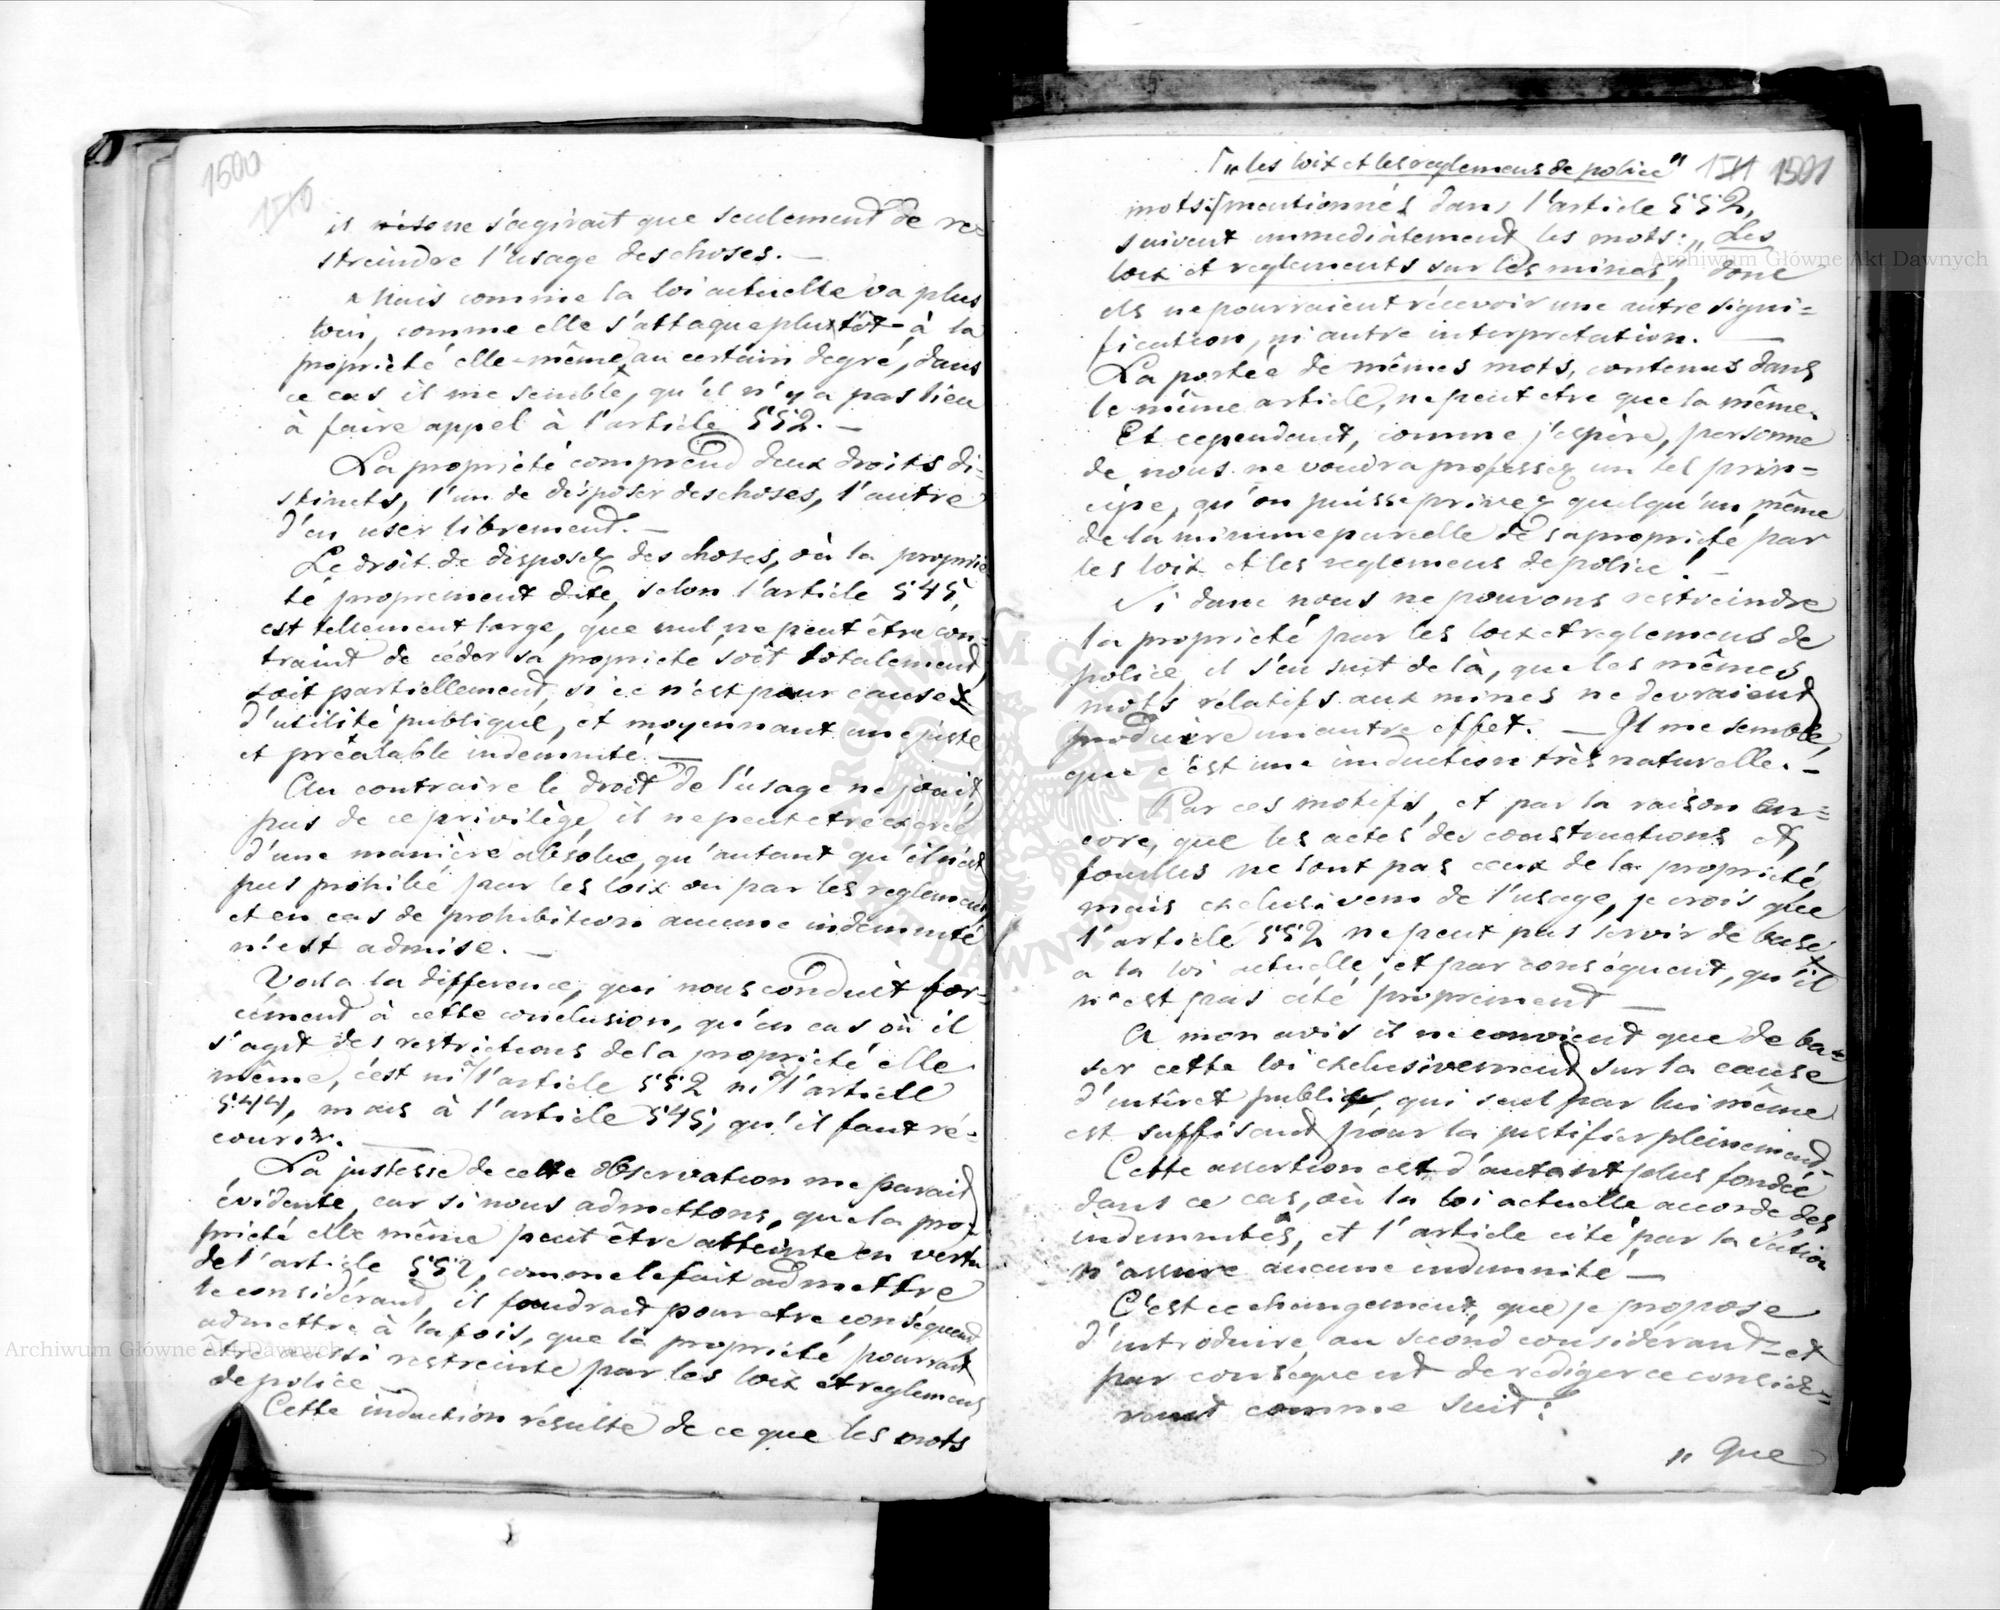 1500
il ne s'agirait que seulement de re=
streindre l'usage des choses. —
Mais comme la loi actuelle va plus
loin, comme elle s'attaque plutôt à la
propriété elle-même, au certain degré, dans
ce cas il me semble, qu'il n'y a pas lieu
à faire appel à l'article 552. —
La propriété comprend deux droits di=
stincts, l'un de disposer des choses, l'autre
d'en user librement. —
Le droit de disposer des choses, où la proprié
té proprement dite, selon l'article 545,
est tellement large, que nul ne peut être con=
traint de céder sa propriété soit totalement,
soit partiellement, si ce n'est pour cause
d'utilité publique, et moyennant une juste
et préalable indemnité. —
Au contraire le droit de l'usage ne jouit
pas de ce privilège, il ne peut etre exercé
d'une manière absolue, qu'autant qu'il n'est
pas prohibé par les loix ou par les reglemens,
et en cas de prohibition aucune indemnité
n'est admise. —
Voila la difference, qui nous conduit for=
cément à cette conclusion, qu'en cas où il
s'agit des restrictions de la propriété elle
même, c'est ni à l'article 552 ni à l'article
544, mais à l'article 545, qu'il faut ré=
courir. —
La justesse de cette observation me parait
évidente, car si nous admettons, que la pro=
priété elle même peut être atteinte en vertu
de l'article 552, comme le fait admettre
le considérant, il faudrait pour etre conséquent
admettre à la fois, que la propriété pourrait
être aussi restreinte par les loix et reglemens
de police
Cette induction résulte de ce que les mots
„les loix et les reglemens de police" 1501
mots mentionnés dans l'article 552,
suivent immediatement les mots: „Les
loix et reglements sur les mines", donc
ils ne pourraient récevoir une autre signi=
fication, ni autre interpretation. —
La portée de mêmes mots, contenus dans
le même article, ne peut etre que la même.
Et cependant, comme j'espère, personne
de nous ne voudra professer un tel prin=
cipe, qu'on puisse priver quelqu'un même
de la minime parcelle de sa propriété par
les loix et les reglemens de police! —
Si donc nous ne pouvons restreindre
la propriété par les loix et reglemens de
police, il s'en suit de là, que les mêmes
mots rélatifs aux mines ne devraient
produire un autre effet. — Il me semble,
que c'est une induction très naturelle. —
Par ces motifs, et par la raison en=
core, que les actes des constructions et
fouilles ne sont pas ceux de la propriété,
mais exclusivem de l'usage, je crois que
l'article 552 ne peut pas servir de base
a la loi actuelle, et par conséquent, qu'il
n'est pas cité proprement —
A mon avis il ne convient que de ba=
ser cette loi exclusivement sur la cause
d'intêret public, qui seul par lui même
est suffisant pour la justifier pleinement.
Cette assertion est d'autant plus fondée
dans ce cas, où la loi actuelle accorde des
indemnités, et l'article cité par la Section
n'assure aucune indemnité —
C'est ce changement, que je propose
d'introduire au second considérant — et
par conséquent de rédiger ce conside=
rant comme suit:
„ Que
Archiwum Główne Akt Dawnych
Archiwum Główne Akt Dawnych
ARCHIWUM GŁÓWNE AKT DAWNYCH